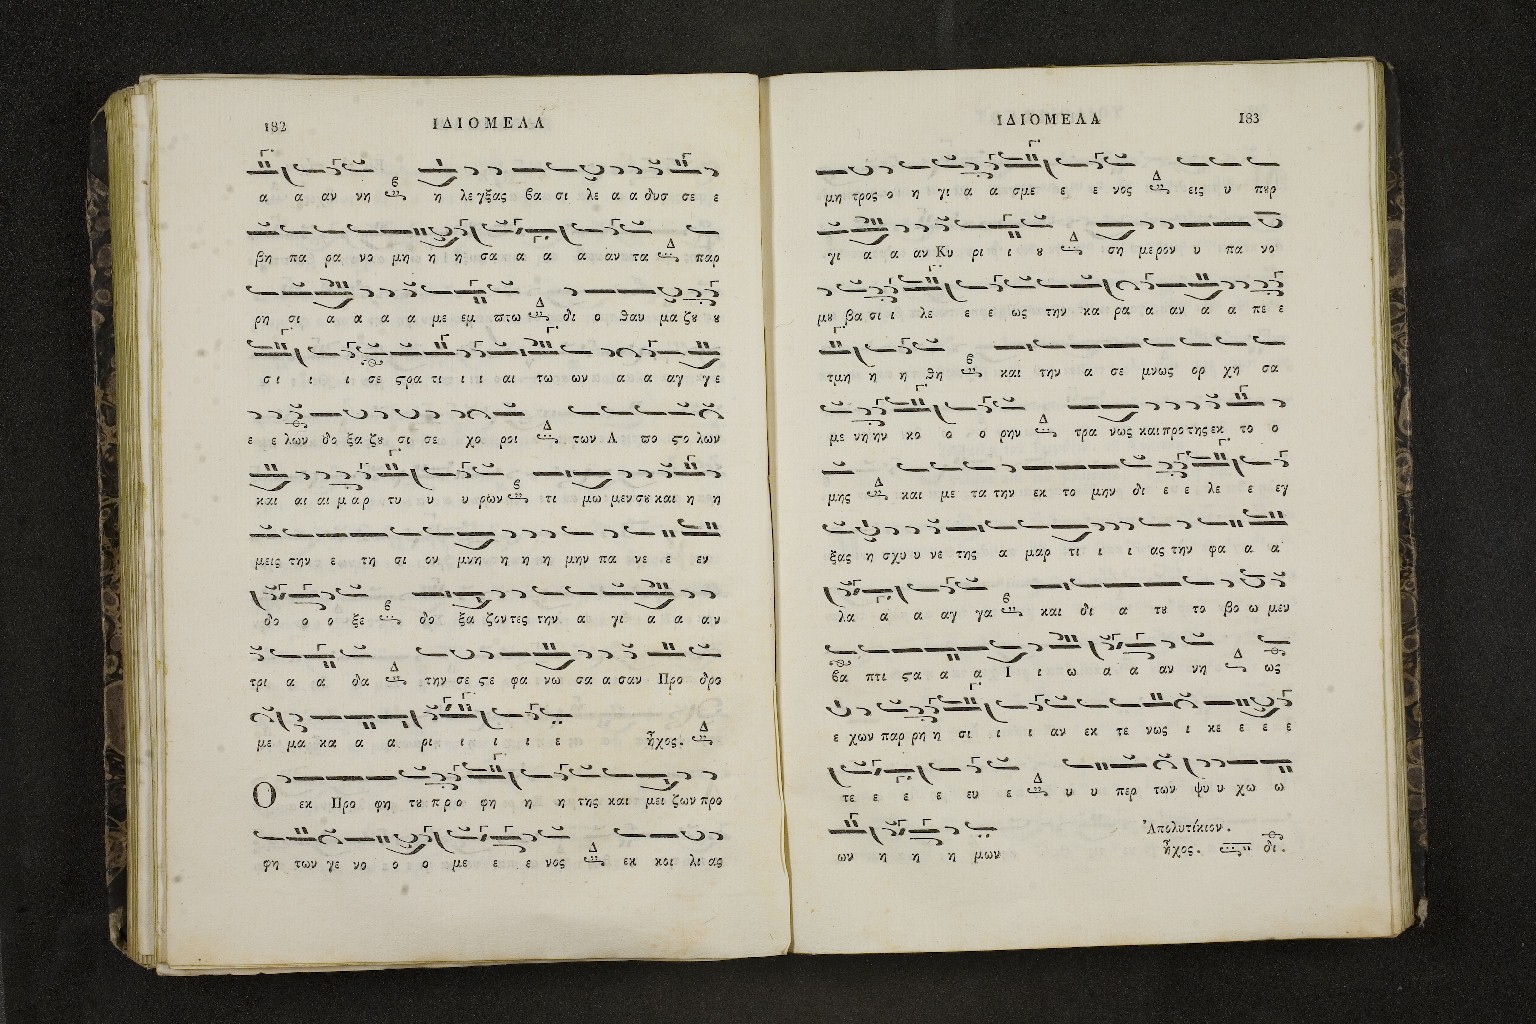 182 ΙΔΙΟΜΕΛΑ
α α αν νη η λεγξας βα σι λε α α δυσ σε ε
βη πα ρα νο μη η η σα α α α αν τα παρ
ρη σι α α α α με εμ πτω δι ο θαυ μα ζου ου
σι ι ι ι σε στρα τι ι ι αι τω ων α α αγ γε
ε ε λων δο ξα ζου σι σε χο ροι των Α πο στο λων
και αι αι μ α ρ τυ υ υ ρων τι μω μεν σου και η η
μεις την ε τη σι ον μνη η η η μην πα νε ε εν
δο ο ο ξε δο ξα ζον τες την α γι α α αν
τρι α α δα την σε σε φα νω σα α σαν Προ δρο
με μα κα α α ρι ι ι ι ε ἦχος.
Ο εκ Προ φη του π ρ ο φη η η της και μει ζων προ
φη των γε νο ο ο με ε ε νος εκ κοι λι ας
ΙΔΙΟΜΕΛΑ 183
μη τρος ο η γι α α σμε ε ε νος εις υ πουρ
γι α α αν Κυ ρι ι ου ση μερον υ πα νο
μου βα σι ι λε ε ε ως την κα ρα α αν α α πε ε
τμη η η θη και την α σε μνως ορ χη σα
με νη ην κο ο ο ρην τρα νως και προ της εκ το ο
μης και με τα την εκ το μην δι ε ε λε ε εγ
ξας η σχυ υ νε της α μαρ τι ι ι ας την φα α α
λα α α αγ γα και δι α του το βο ω μεν
βα πτι στα α α Ι ι ω α α αν νη ως
ε χων παρ ρη η σι ι ι αν εκ τε νως ι κε ε ε ε
τε ε ε ε ευ ε υ υ περ των ψυ υ χω ω
ων η η η μων Ἀπολυτίκιον.
ἦχος. δι.